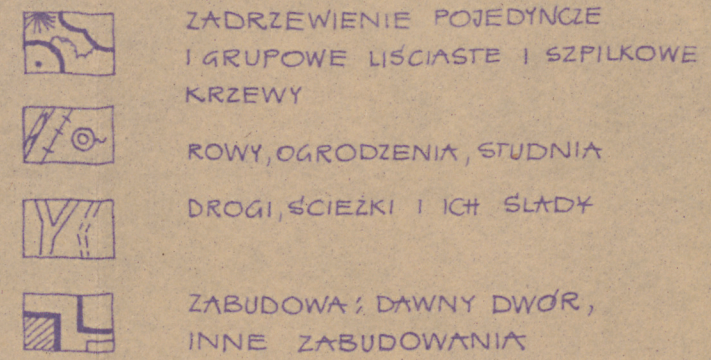 ZADRZEWIENIE POJEDYŃCZE
I GRUPOWE LIŚCIASTE I SZPILKOWE
KRZEWY
ROWY, OGRODZENIA, STUDNIA
DROGI, ŚCIEŻKI I ICH ŚLADY
ZABUDOWA: DAWNY DWÓR,
INNE ZABUDOWANIA